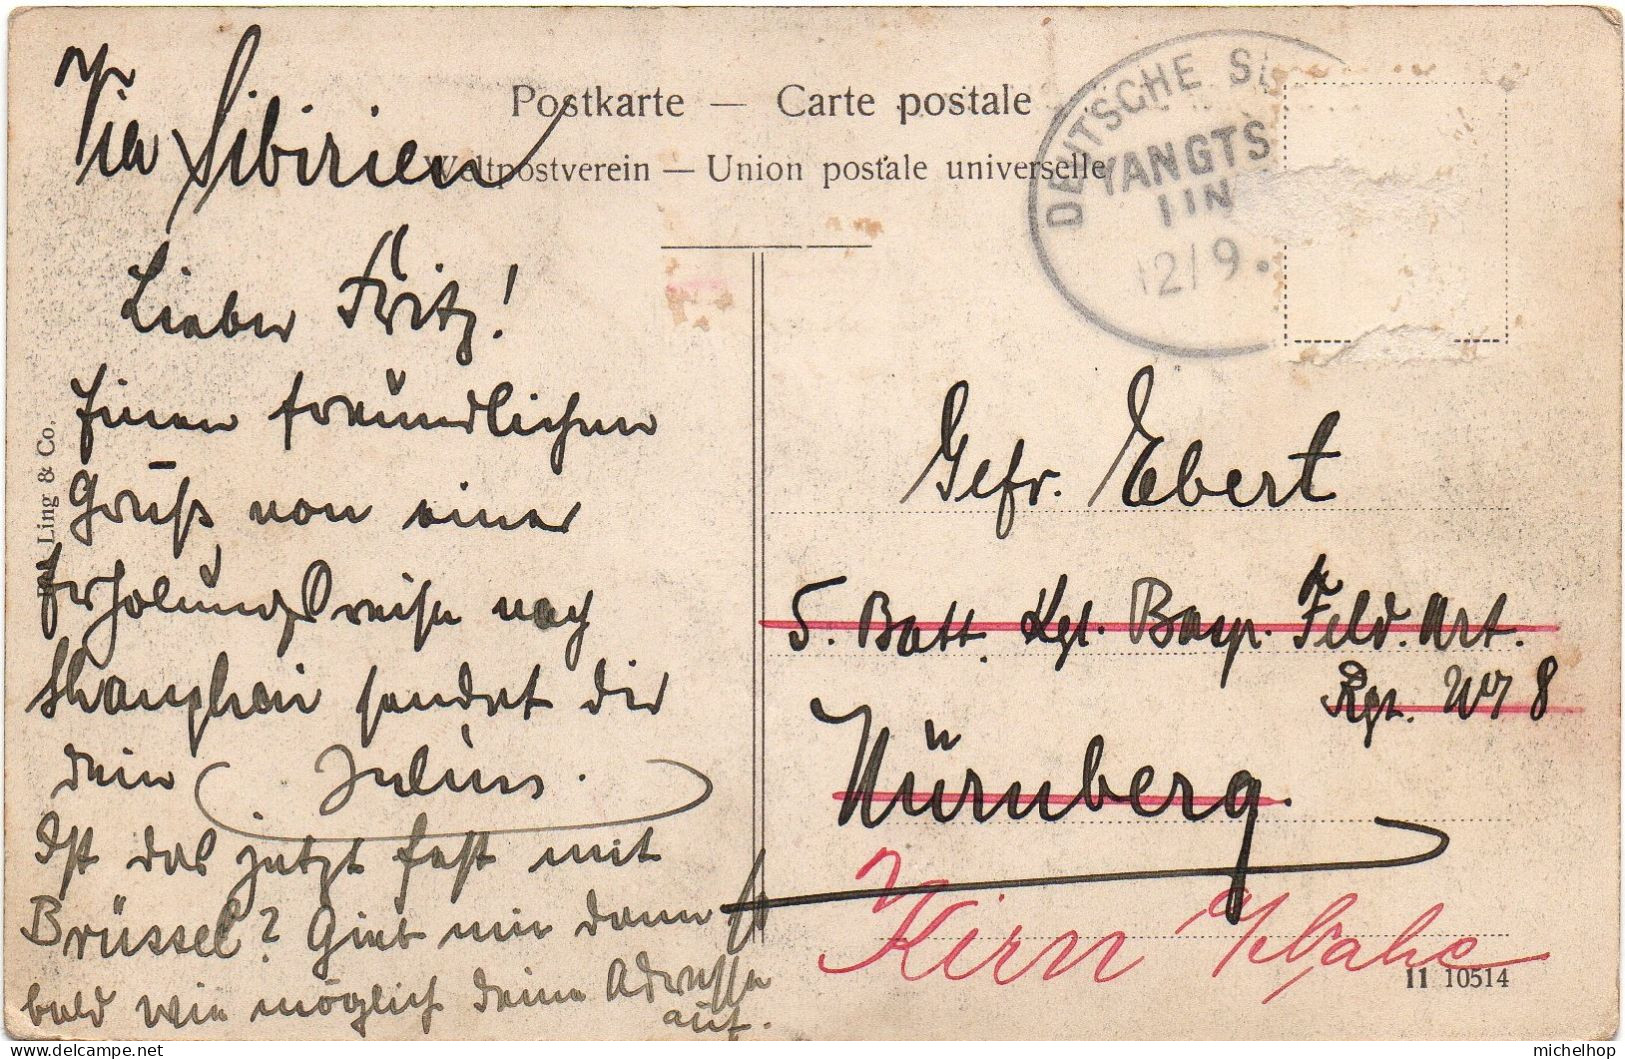 Via Sibirien
Postkarte — Carte postale
Weltpostverein — Union postale universelle
DEUTSCHE S
YANGTS
LIN
12/9.
Lieber Fritz!
Einen freundlichen
Gruß von einer
Erholungsreise nach
Shanghai sendet dir
dein Julius.
Ist das jetzt fest mit
Brüssel? Gieb mir dann so
bald wie möglich deine Adresse
auf.
Ling & Co.
Gefr. Ebert
5. Batt. Kgl. Bayr. Feld. Art.
Rgt. No 8
Nürnberg.
Kirn a/Nahe
11 10514
delcampe.net
michelhop